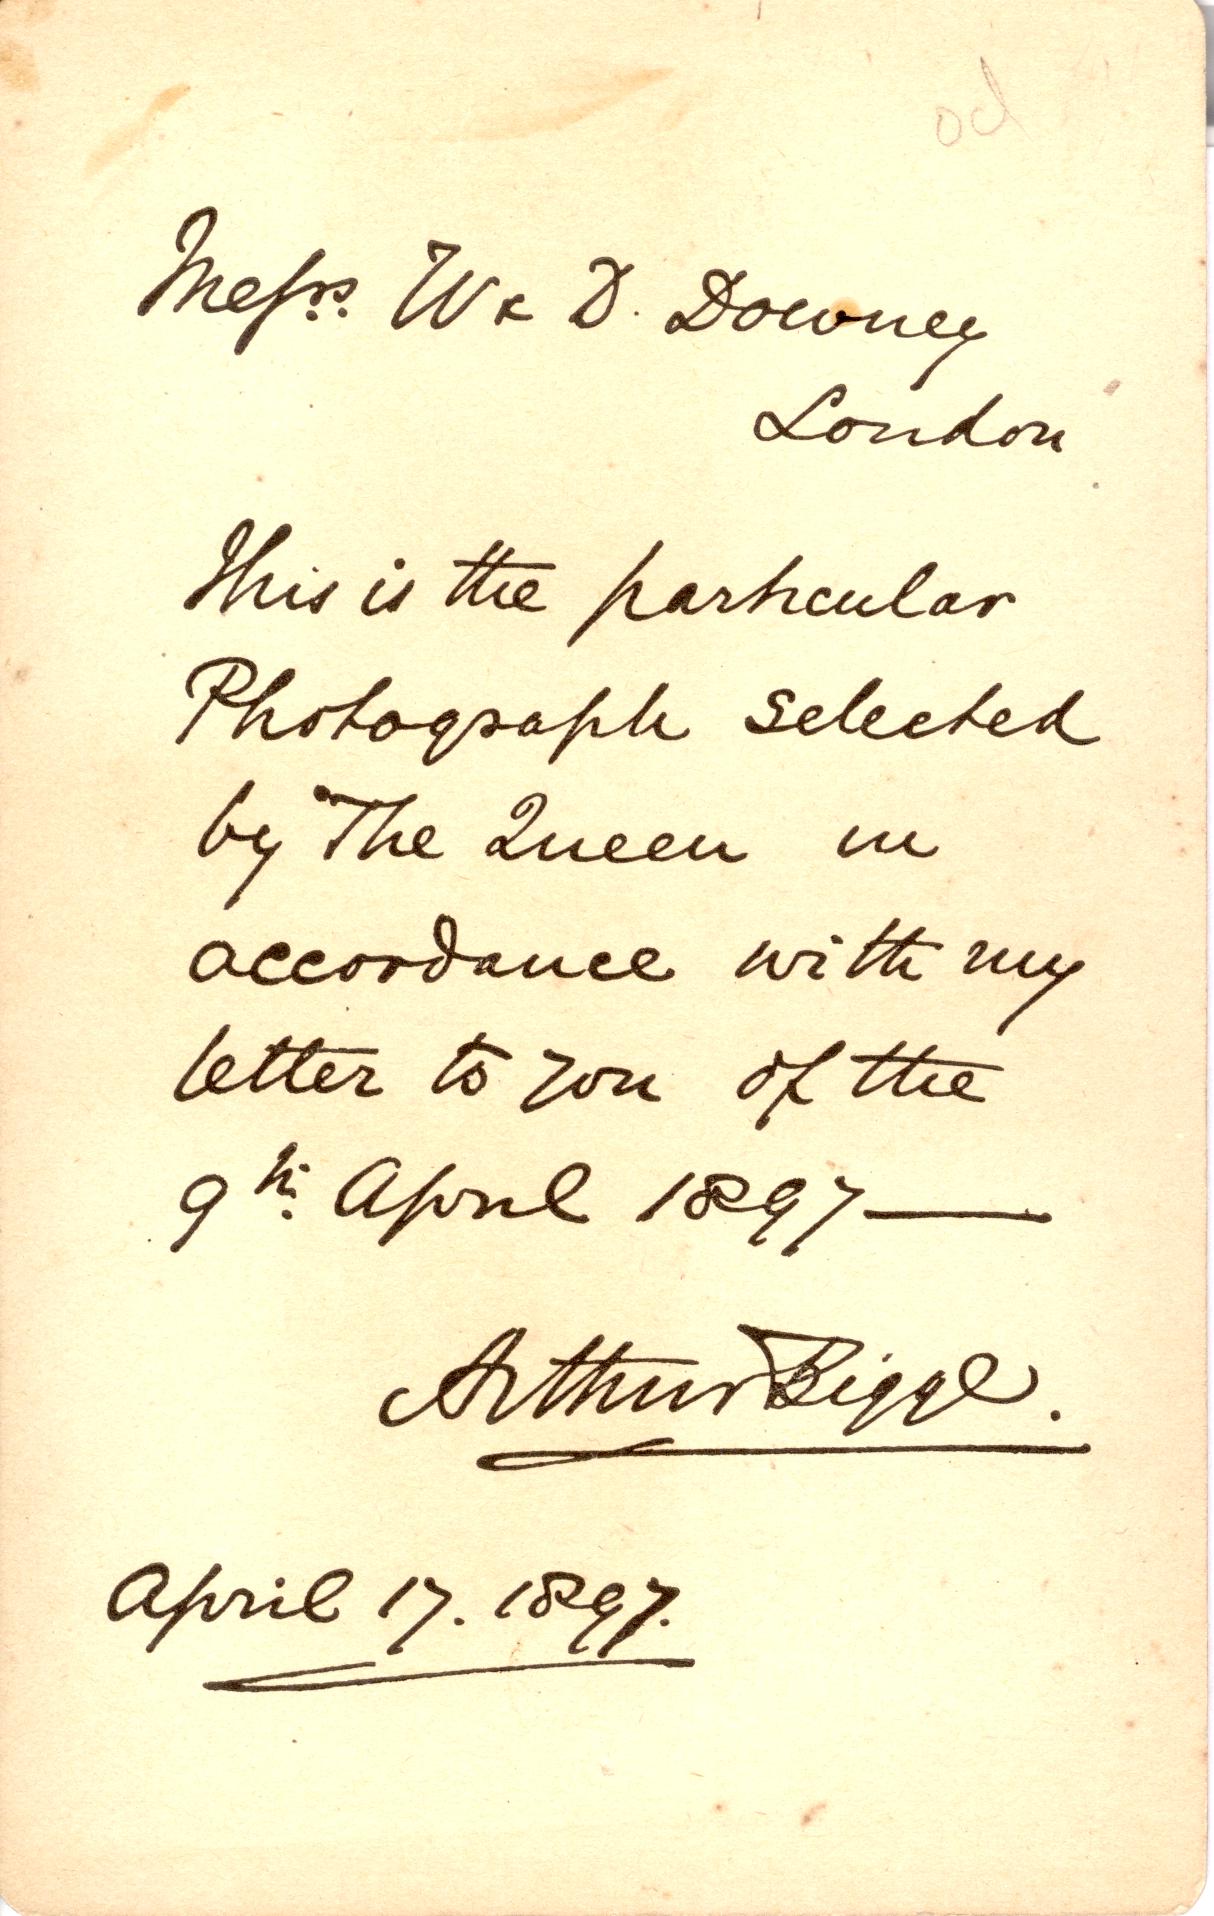 Messrs. W & D. Downey
London
This is the particular
Photograph selected
by The Queen in
accordance with my
letter to you of the
9th. April 1897—
Arthur Bigge.
April 17. 1897.